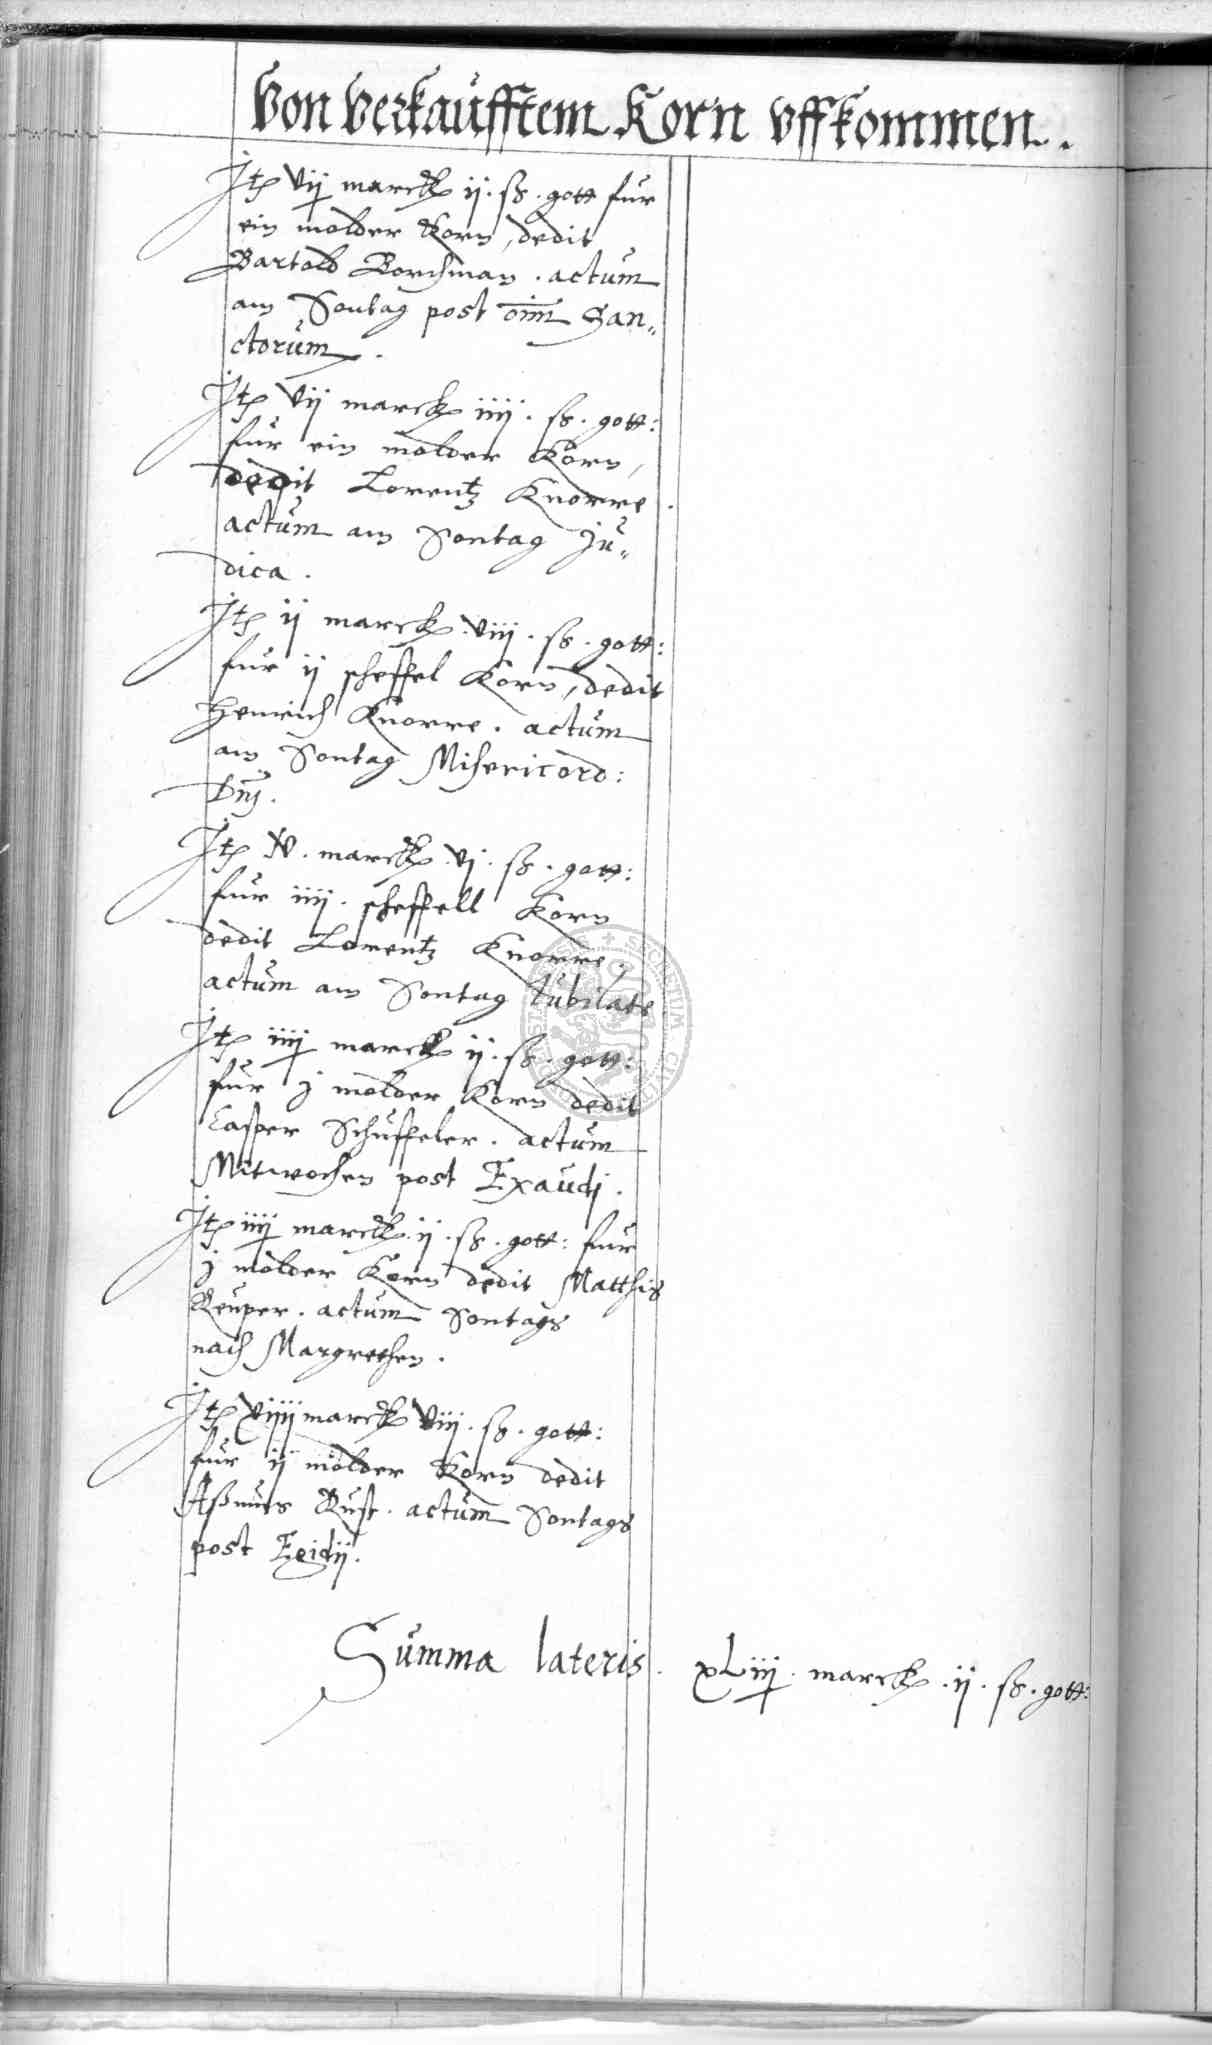 Von verkaufftem Korn uffkommen.
Jtē vij marck ij. ß. gott fur
ein molder Korn, dedit
Bartold Borchman. actum
am Sontag post oīm San„
ctorum.
Jtē vij marck iiij. ß. gott:
fur ein molder Korn,
dedit Lorentz Knorre.
actum am Sontag Ju„
dica.
Jtē ij marck viij. ß. gott:
fur ij scheffel Korn, dedit
Henrich Knorre. actum
am Sontag Misericord:
Dn̄j.
Jtē v. marck vj. ß. gott:
fur iiij. scheffell Korn
dedit Lorentz Knorre.
actum am Sontag Iubilate.
Jtē iiij marck ij. ß. gott:
fur j molder Korn dedit
Casper Schuffeler. actum
Mitwochen post Exaudj.
Jtē iiij marck ij. ß. gott: fur
j molder Korn dedit Matthis
Reuper. actum Sontags
nach Margrethen.
Jtē viiij marck viij. ß. gott:
fur ij molder Korn dedit
Aßmus Rust. actum Sontags
post Egidij.
Summa lateris. xLiij. marck. ij. ß. gott: